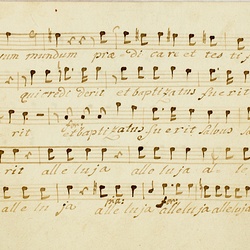 sum mundum præ di care et tes ti f
qui credi derit et baptizatus fu erit
rit et baptizatus fu erit salvus
rit alle lu ja alle lu ja a
alle lu ja alle lu ja alleluja alleluja